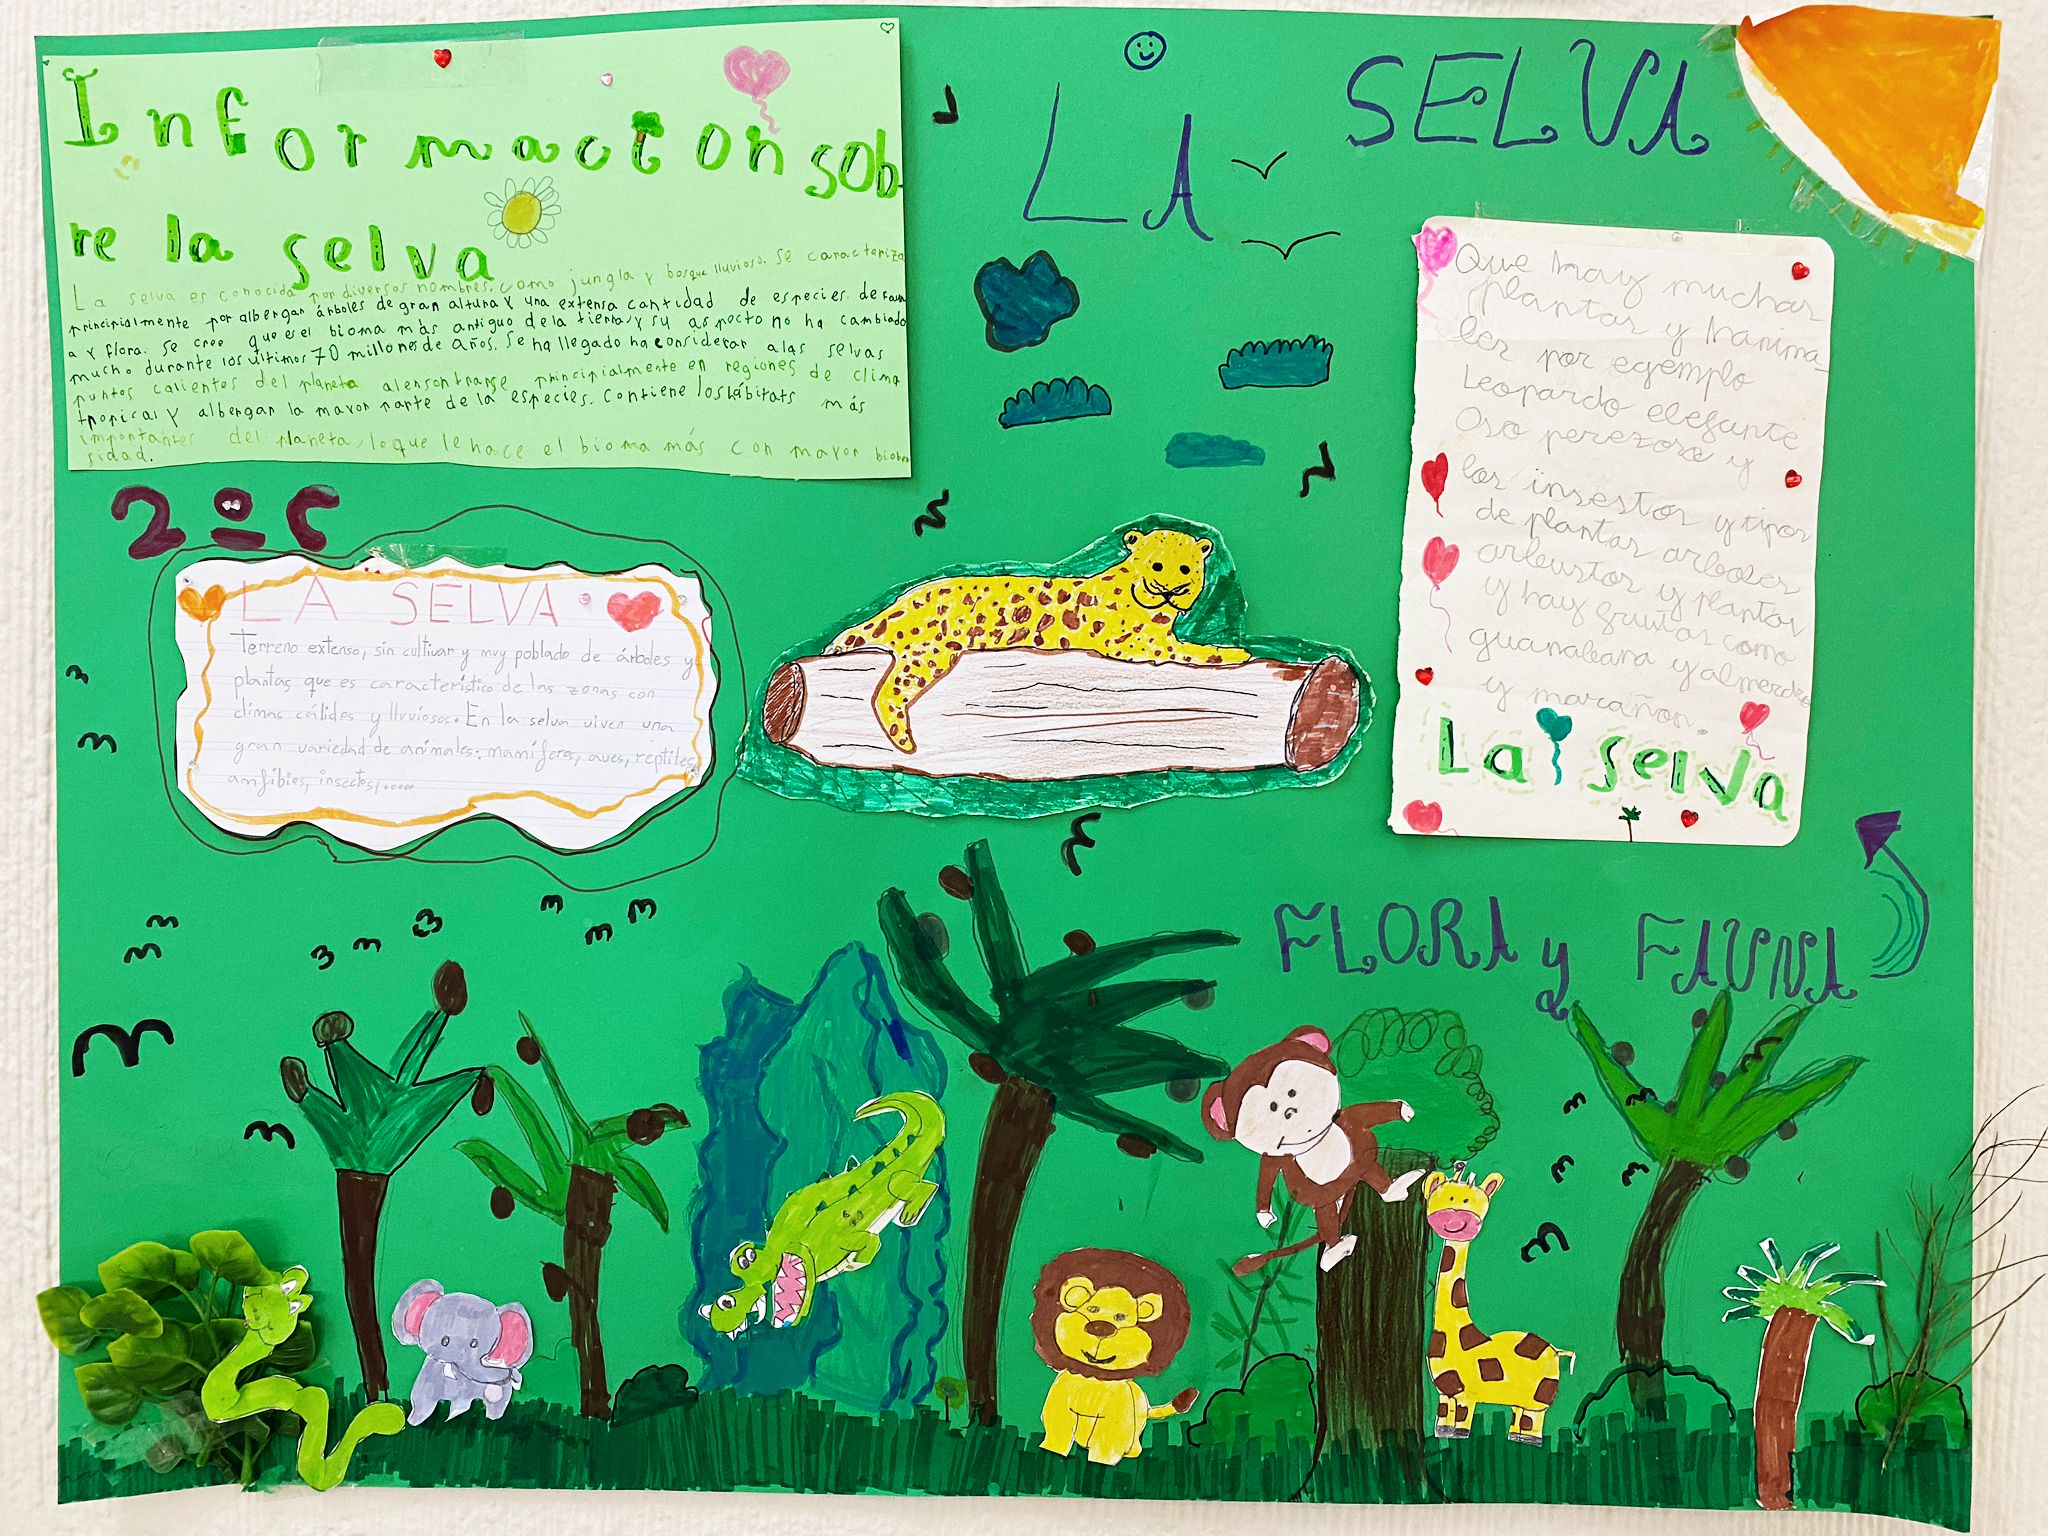 Información sob
re la selva
La selva es conocida por diversos nombres, como jungla y bosque lluvioso. Se caracteriza
principialmente por albergar árboles de gran altura y una extensa cantidad de especies de faun
a y flora. Se cree que es el bioma más antiguo de la tierra y su aspecto no ha cambiado
mucho durante los últimos 70 millones de años. Se ha llegado ha considerar a las selvas
puntos calientes del planeta al ensontrarse principialmente en regiones de clima
tropical y albergan la mayor parte de la especies. Contiene los hábitats más
importantes del planeta, lo que le hace el bioma más con mayor biober
sidad.
LA SELVA
2º C
LA SELVA
Terreno extenso, sin cultivar y muy poblado de árboles y
plantas que es característico de las zonas con
climas cálidos y lluviosos. En la selva viven una
gran variedad de animales: mamíferos, aves, reptiles,
anfibios, insectos,.....
Que hay muchas
plantas y hanima-
les por egemplo
Leopardo elefante
Oso perezoso y
los insestos y tipos
de plantas arboles
arbustos y plantas
y hay frutas como
guanabana y almendra
y marañon
La selva
FLORA y FAUNA